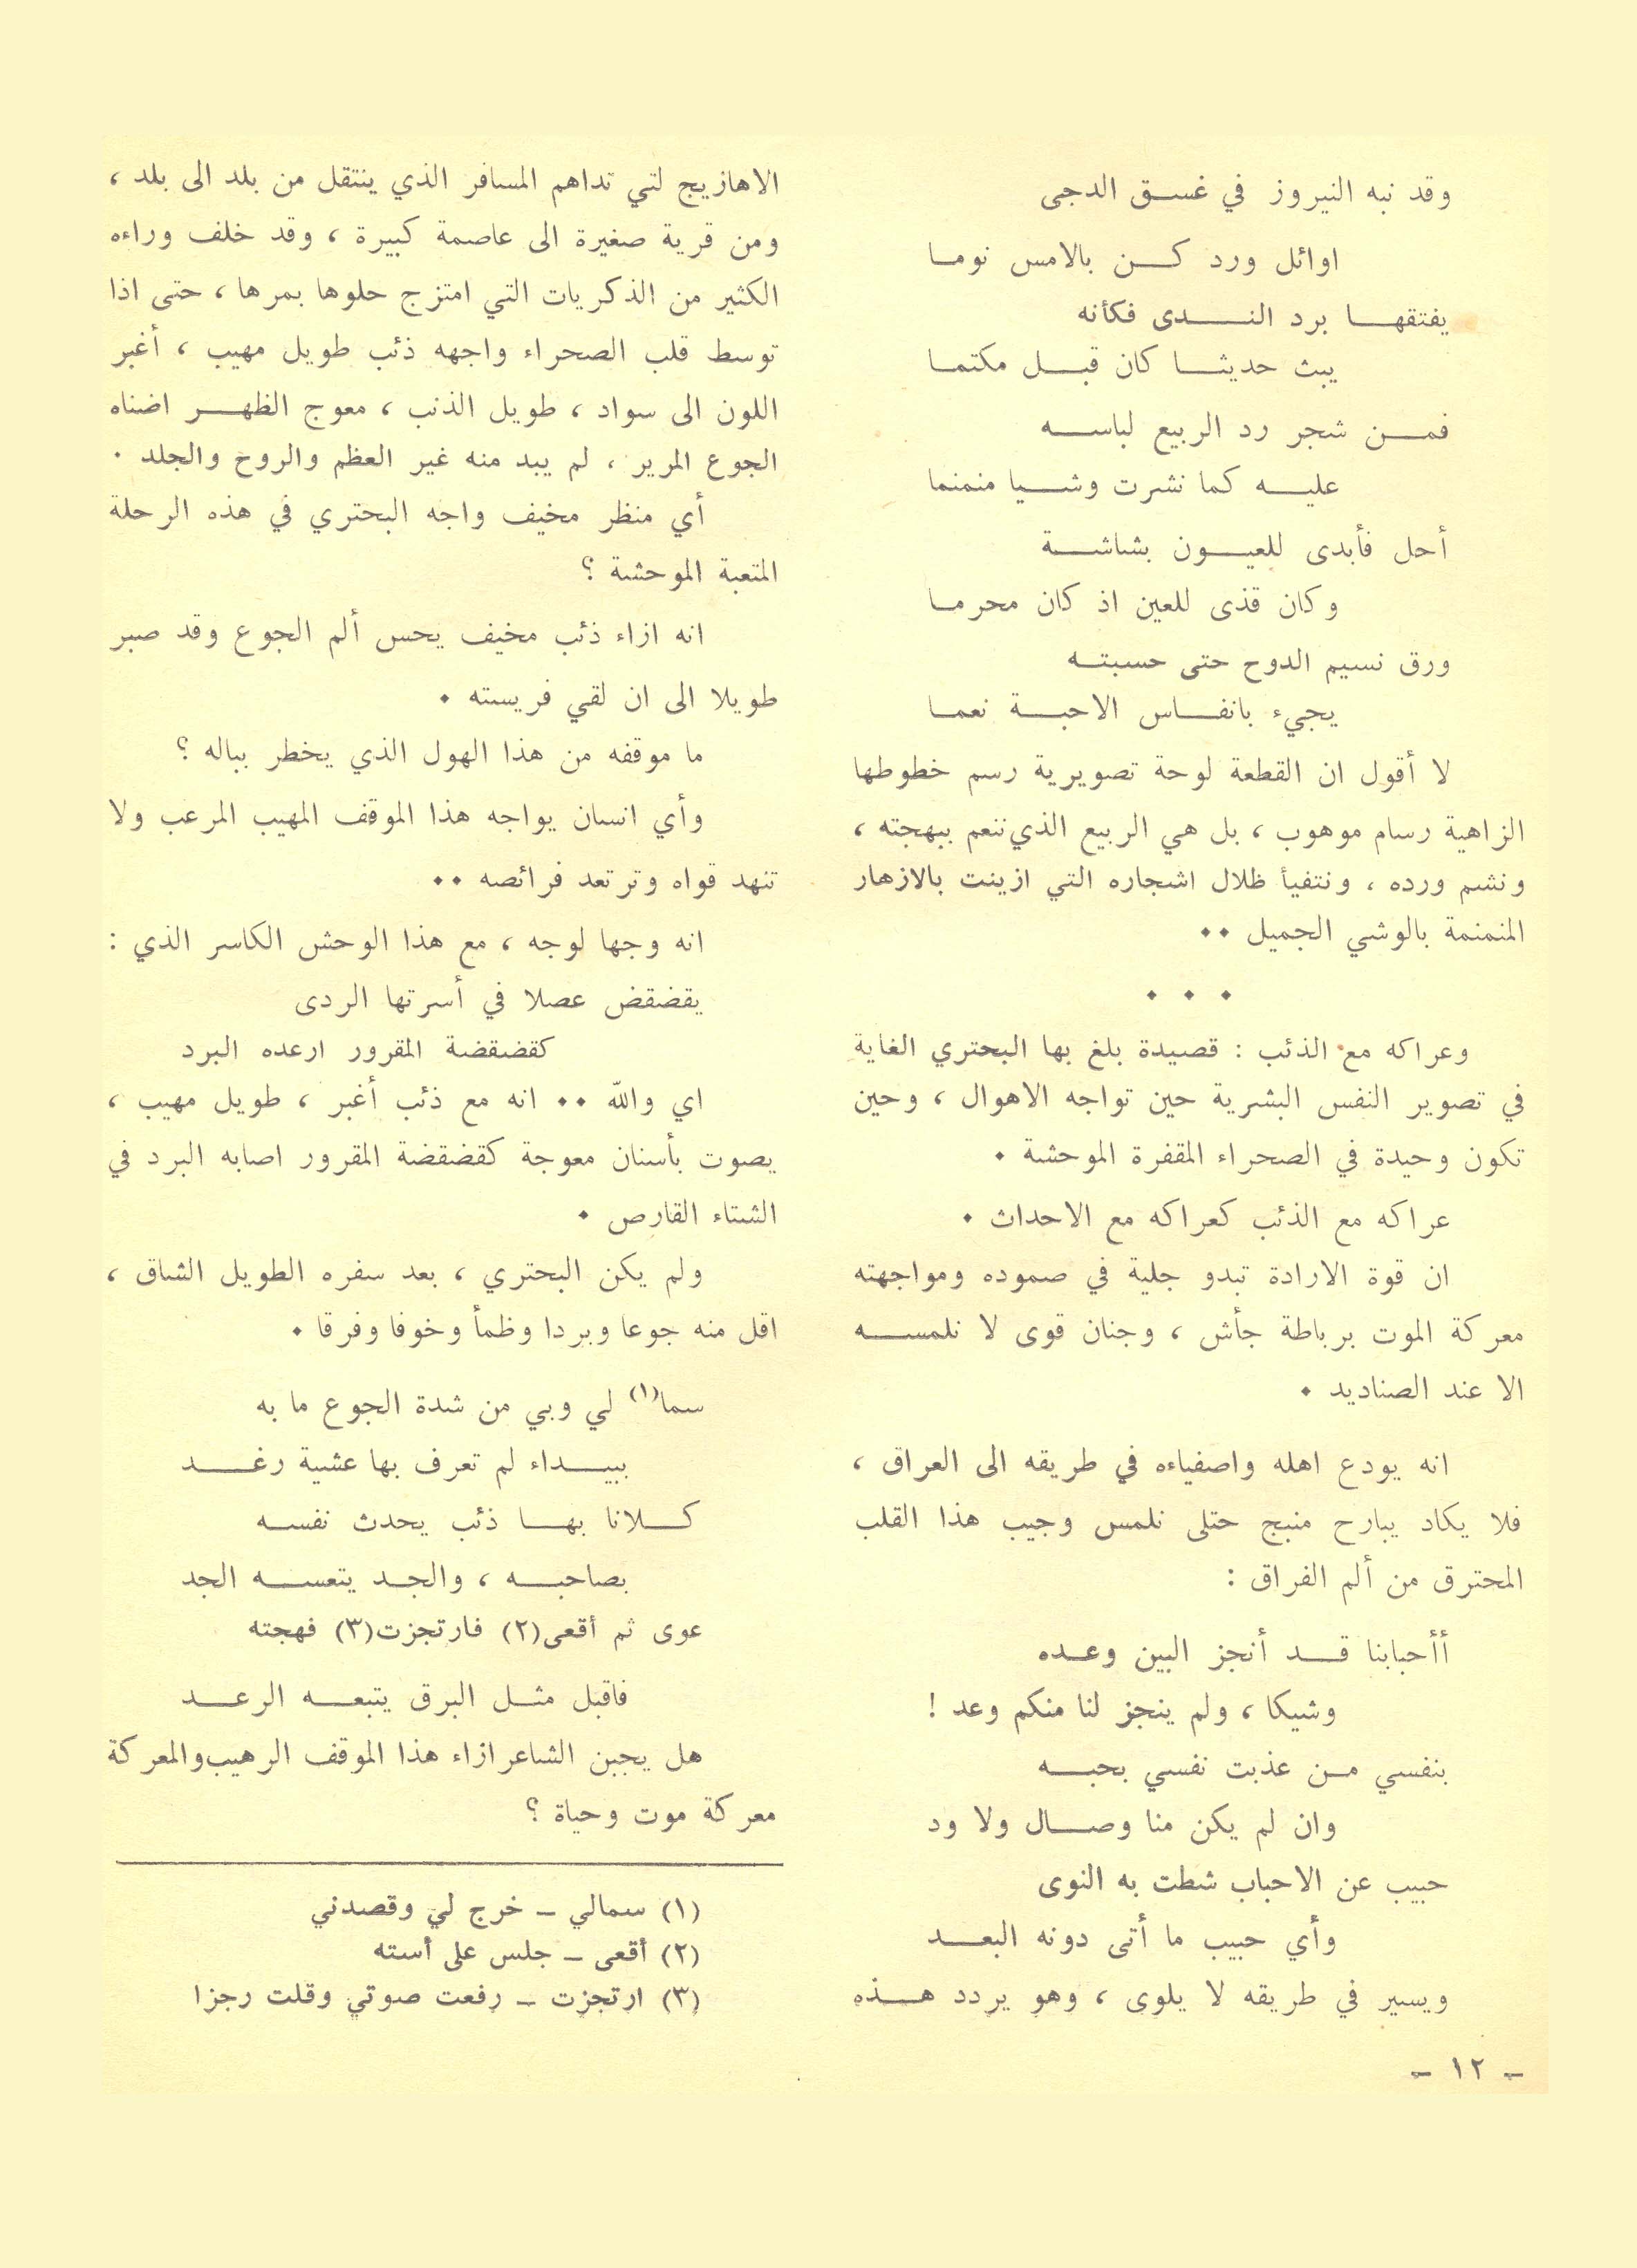 وقد نبه النيروز في غسق الدجى
اوائل ورد كن بالامس نوما
يفتقها برد الندى فكأنه
يبث حديثا كان قبل مكتما
فمن شجر رد الربيع لباسه
عليه كما نشرت وشيا منمنما
أحل فأبدى للعيون بشاشة
وكان قذى للعين اذ كان محرما
ورق نسيم الدوح حتى حسبته
يجيء بانفاس الاحبة نعما
لا أقول ان القطعة لوحة تصويرية رسم خطوطها
الزاهية رسام موهوب ، بل هي الربيع الذي ننعم ببهجته ،
ونشم ورده ، ونتفيأ ظلال اشجاره التي ازينت بالازهار
المنمنمة بالوشي الجميل ٠٠
٠ ٠ ٠
وعراكه مع الذئب : قصيدة بلغ بها البحتري الغاية
في تصوير النفس البشرية حين تواجه الاهوال ، وحين
تكون وحيدة في الصحراء المقفرة الموحشة ٠
عراكه مع الذئب كعراكه مع الاحداث ٠
ان قوة الارادة تبدو جلية في صموده ومواجهته
معركة الموت برباطة جأش ، وجنان قوى لا نلمسه
الا عند الصناديد ٠
انه يودع اهله واصفياءه في طريقه الى العراق ،
فلا يكاد يبارح منبج حتلى نلمس وجيب هذا القلب
المحترق من ألم الفراق :
أأحبابنا قد أنجز البين وعده
وشيكا ، ولم ينجز لنا منكم وعد !
بنفسي من عذبت نفسي بحبه
وان لم يكن منا وصال ولا ود
حبيب عن الاحباب شطت به النوى
وأي حبيب ما أتى دونه البعد
ويسير في طريقه لا يلوى ، وهو يردد هذه
الاهازيج لتي تداهم المسافر الذي ينتقل من بلد الى بلد ،
ومن قرية صغيرة الى عاصمة كبيرة ، وقد خلف وراءه
الكثير من الذكريات التي امتزج حلوها بمرها ، حتى اذا
توسط قلب الصحراء واجهه ذئب طويل مهيب ، أغبر
اللون الى سواد ، طويل الذنب ، معوج الظهر اضناه
الجوع المرير ، لم يبد منه غير العظم والروح والجلد ٠
أي منظر مخيف واجه البحتري في هذه الرحلة
المتعبة الموحشة ؟
انه ازاء ذئب مخيف يحس ألم الجوع وقد صبر
طويلا الى ان لقي فريسته ٠
ما موقفه من هذا الهول الذي يخطر بباله ؟
وأي انسان يواجه هذا الموقف المهيب المرعب ولا
تنهد قواه وترتعد فرائصه ٠٠
انه وجها لوجه ، مع هذا الوحش الكاسر الذي :
يقضقض عصلا في أسرتها الردى
كقضقضة المقرور ارعده البرد
اي والله ٠٠ انه مع ذئب أغبر ، طويل مهيب ،
يصوت بأسنان معوجة كقضقضة المقرور اصابه البرد في
الشتاء القارص ٠
ولم يكن البحتري ، بعد سفره الطويل الشاق ،
اقل منه جوعا وبردا وظمأ وخوفا وفرقا ٠
سما(١) لي وبي من شدة الجوع ما به
ببيداء لم تعرف بها عشية رغد
كلانا بها ذئب يحدث نفسه
بصاحبه ، والجد يتعسه الجد
عوى ثم أقعى(٢) فارتجزت(٣) فهجته
فاقبل مثل البرق يتبعه الرعد
هل يجبن الشاعر ازاء هذا الموقف الرهيب والمعركة
معركة موت وحياة ؟
(١) سمالي – خرج لي وقصدني
(٢) أقعى – جلس على أسته
(٣) ارتجزت – رفعت صوتي وقلت رجزا
– ١٢ –